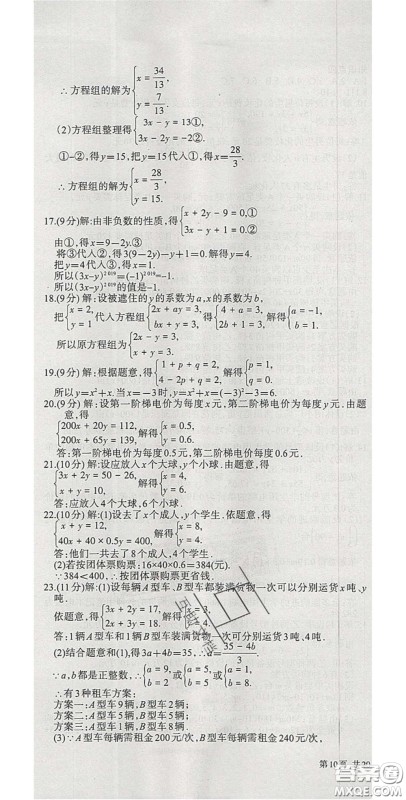 ∴方程组的解为{x=34/13, y=7/13.
(2)方程组整理得{3x-y=13①, 3x-2y=-2②.
①-②,得y=15,把y=15代入①,得x=28/3.
∴方程组的解为{x=28/3, y=15.
17.(9分)解:由非负数的性质,得{x+2y-9=0,① 3x-y+1=0.②
由①,得x=9-2y.③
将③代入②,得3(9-2y)-y+1=0.解得y=4.
把y=4代入③,得x=1.
所以(3x-y)²⁰¹⁹=(-1)²⁰¹⁹=-1.
所以(3x-y)²⁰¹⁹的值是-1.
18.(9分)解:设被遮住的y的系数为a,x的系数为b,
把{x=2, y=1代入方程组{2x+ay=3, bx+y=3,得{4+a=3, 2b+1=3,解得{a=-1, b=1.
所以原方程组为{2x-y=3, x+y=3.
19.(9分)解:根据题意,得{1+p+q=2, 4-2p+q=2,解得{p=1, q=0.
所以y=x²+x.当x=-3时,y=x²+x=(-3)²-3=6.
20.(9分)解:设第一阶梯电价为每度x元,第二阶梯电价为每度y元.由题
意,得
{200x+20y=112, 200x+65y=139,解得{x=0.5, y=0.6.
答:第一阶梯电价为每度0.5元,第二阶梯电价为每度0.6元.
21.(10分)解:设应放入x个大球,y个小球.由题意,得
{3x+2y=50-26, x+y=10.解得{x=4, y=6.
答:应放入4个大球,6个小球.
22.(10分)解:(1)设去了x个成人,y个学生.依题意,得
{x+y=12, 40x+40×0.5y=400,解得{x=8, y=4.
答:他们一共去了8个成人,4个学生.
(2)若按团体票购票:16×40×0.6=384(元).
∵384<400,∴按团体票购票更省钱.
23.(11分)解:(1)设每辆A型车、B型车都装满货物一次可以分别运货x吨、y
吨.
依题意,得{3x+2y=17, 2x+3y=18,解得{x=3, y=4.
答:1辆A型车和1辆B型车装满货物一次可分别运货3吨、4吨.
(2)结合题意和(1),得3a+4b=35,∴a=(35-4b)/3.
∵a,b都是正整数,∴{a=9, b=2或{a=5, b=5或{a=1, b=8.
∴有3种租车方案:
方案一:A型车9辆,B型车2辆;
方案二:A型车5辆,B型车5辆;
方案三:A型车1辆,B型车8辆.
(3)∵A型车每辆需租金200元/次,B型车每辆需租金240元/次,
第10页 共20
答案圈
MXQE.COM